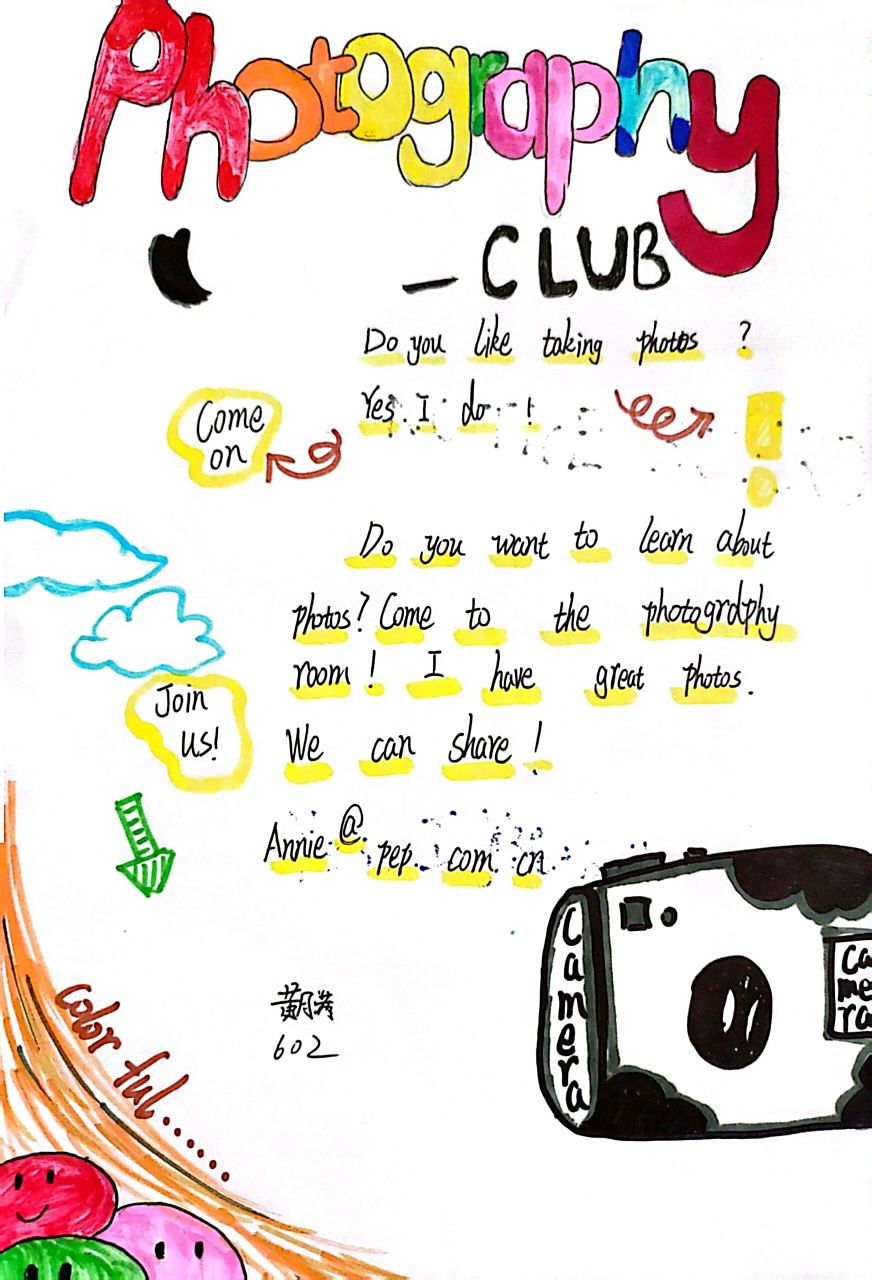 Photography
— CLUB
Do you like taking photos ?
Yes. I do !
Come
on
Do you want to learn about
photos? Come to the photography
room ! I have great photos.
Join
us!
We can share !
Annie@pep.com.cn
Camera
Ca
me
ra
color ful......
602